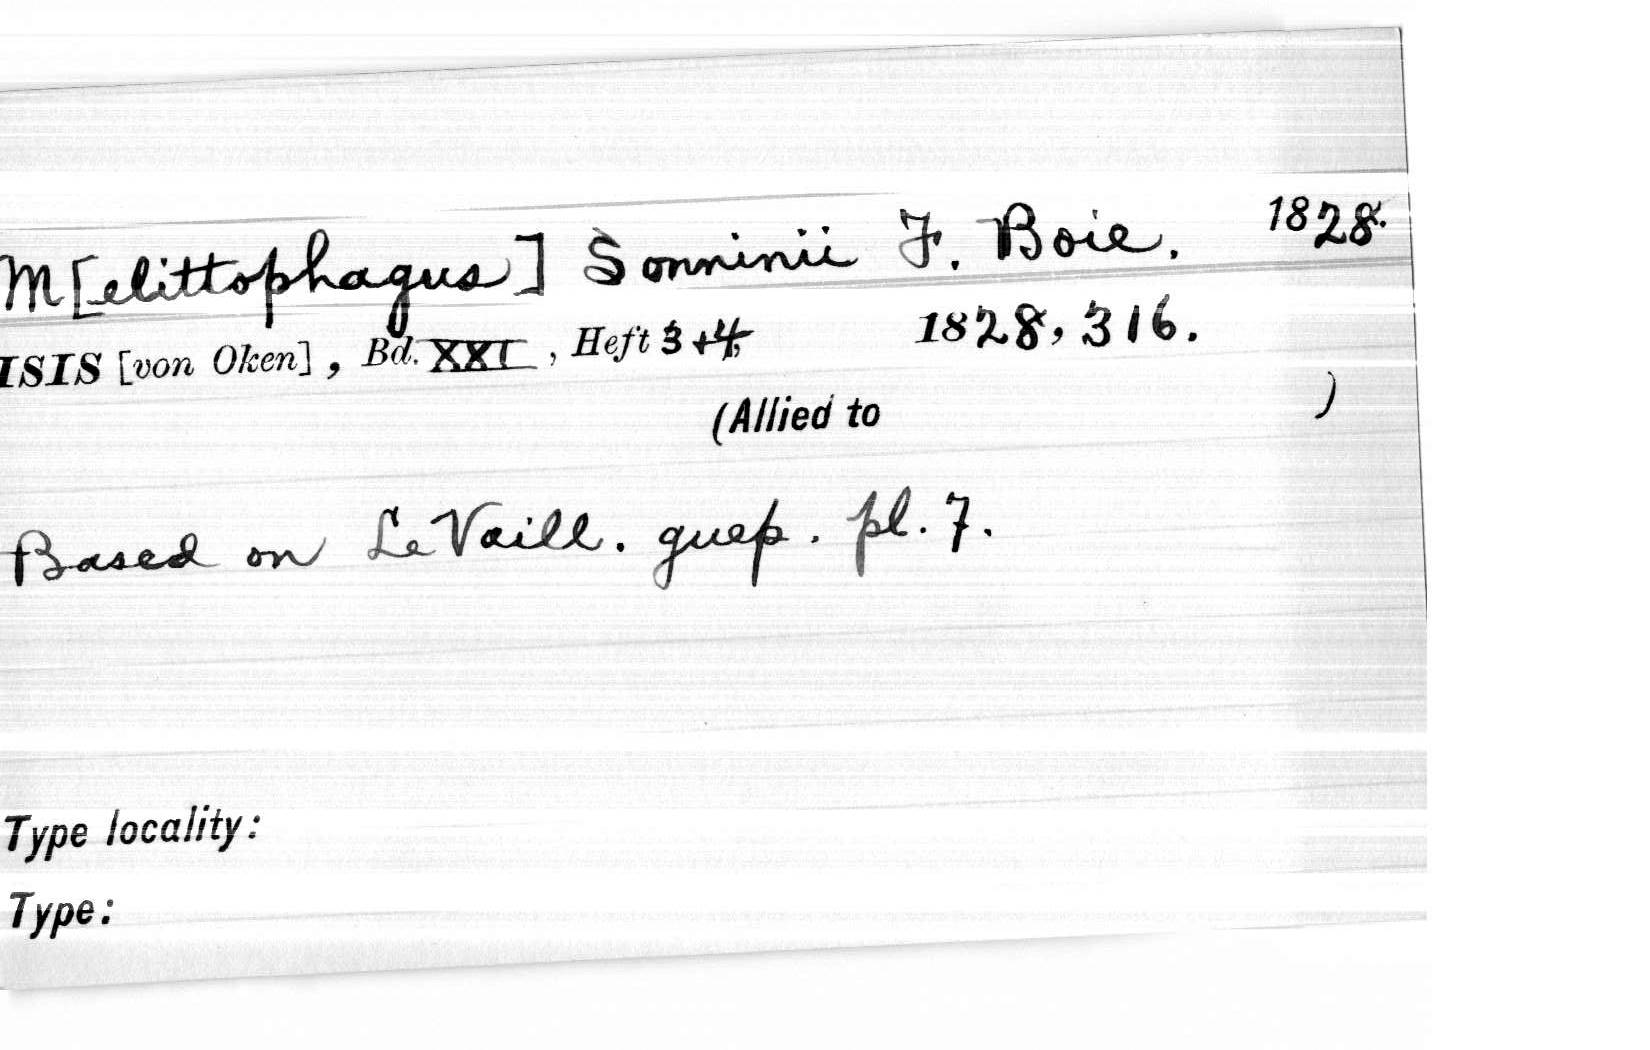 M[elittophagus] Sonninii F. Boie. 1828.
ISIS [von Oken], Bd. XXI, Heft 3+4, 1828, 316.
(Allied to )
Based on LeVaill. guep. pl. 7.
Type locality:
Type: